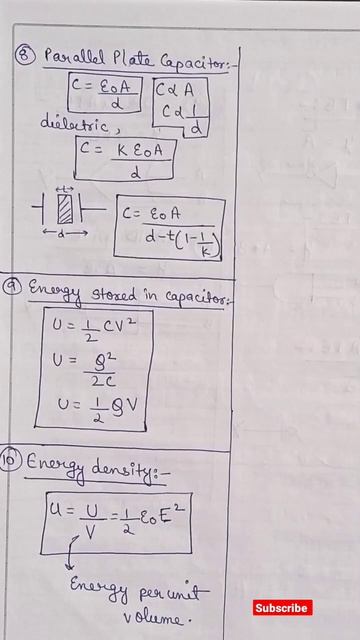 ⑧ Parallel Plate Capacitor:-
C = ε₀A/d   C ∝ A
C ∝ 1/d
dielectric,
C = Kε₀A/d
t
d
C = ε₀A/(d-t(1-1/K))
⑨ Energy stored in capacitor:-
U = 1/2 CV²
U = Q²/2C
U = 1/2 QV
⑩ Energy density:-
u = U/V = 1/2 ε₀E²
Energy per unit
volume.
Subscribe